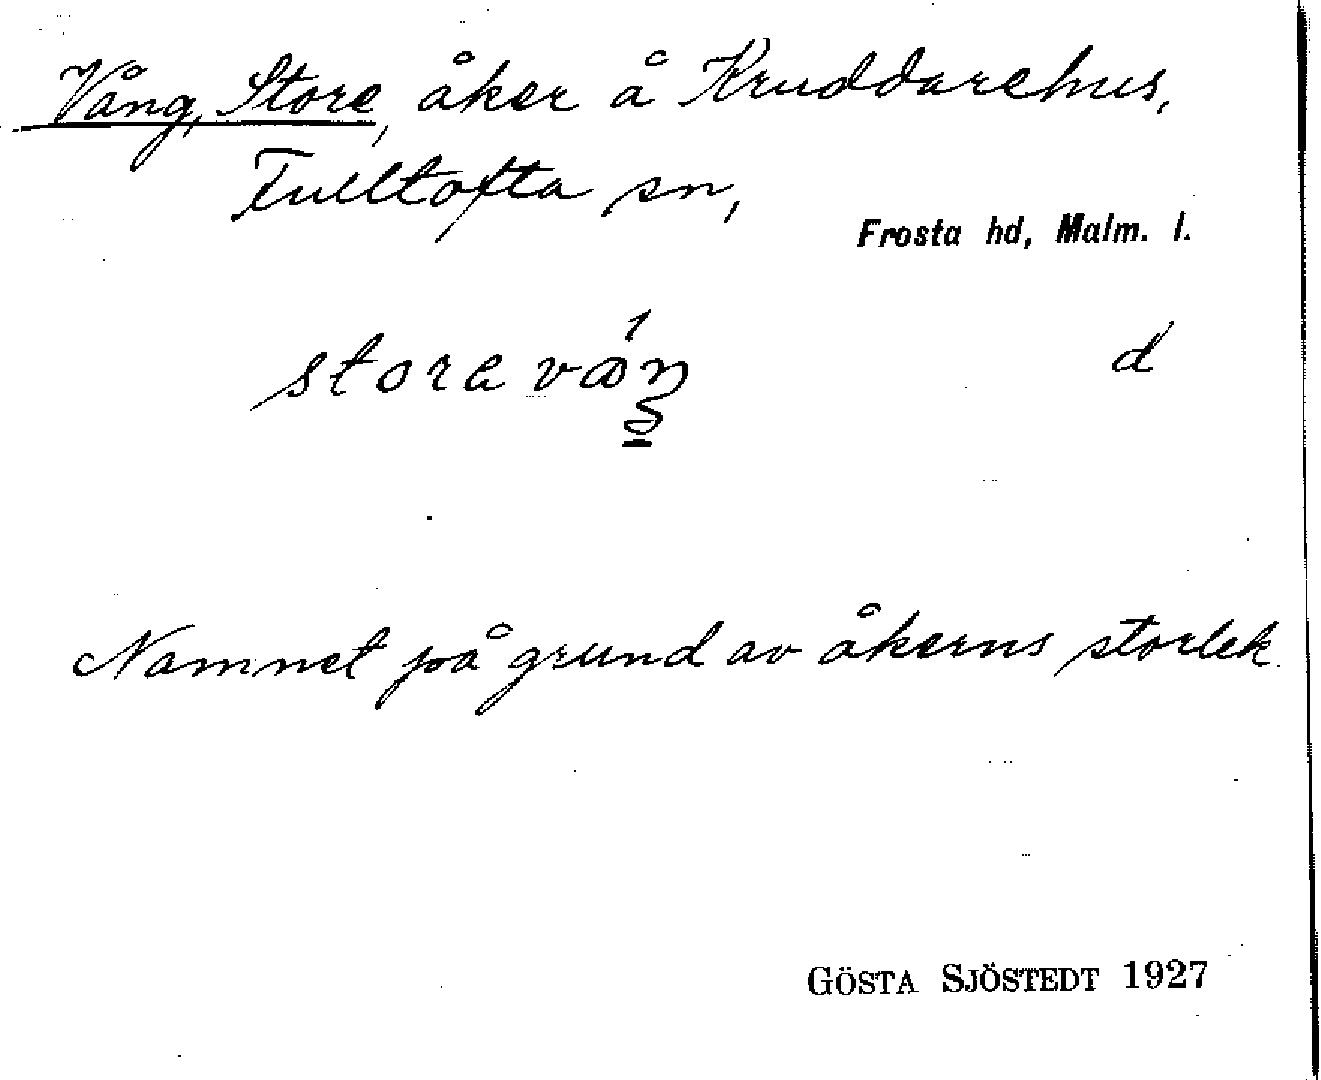 Vång, Store, åker å Kruddarehus,
Fulltofta sn,
Frosta hd, Malm. l.
store våŋ d
Namnet på grund av åkerns storlek.
GÖSTA SJÖSTEDT 1927